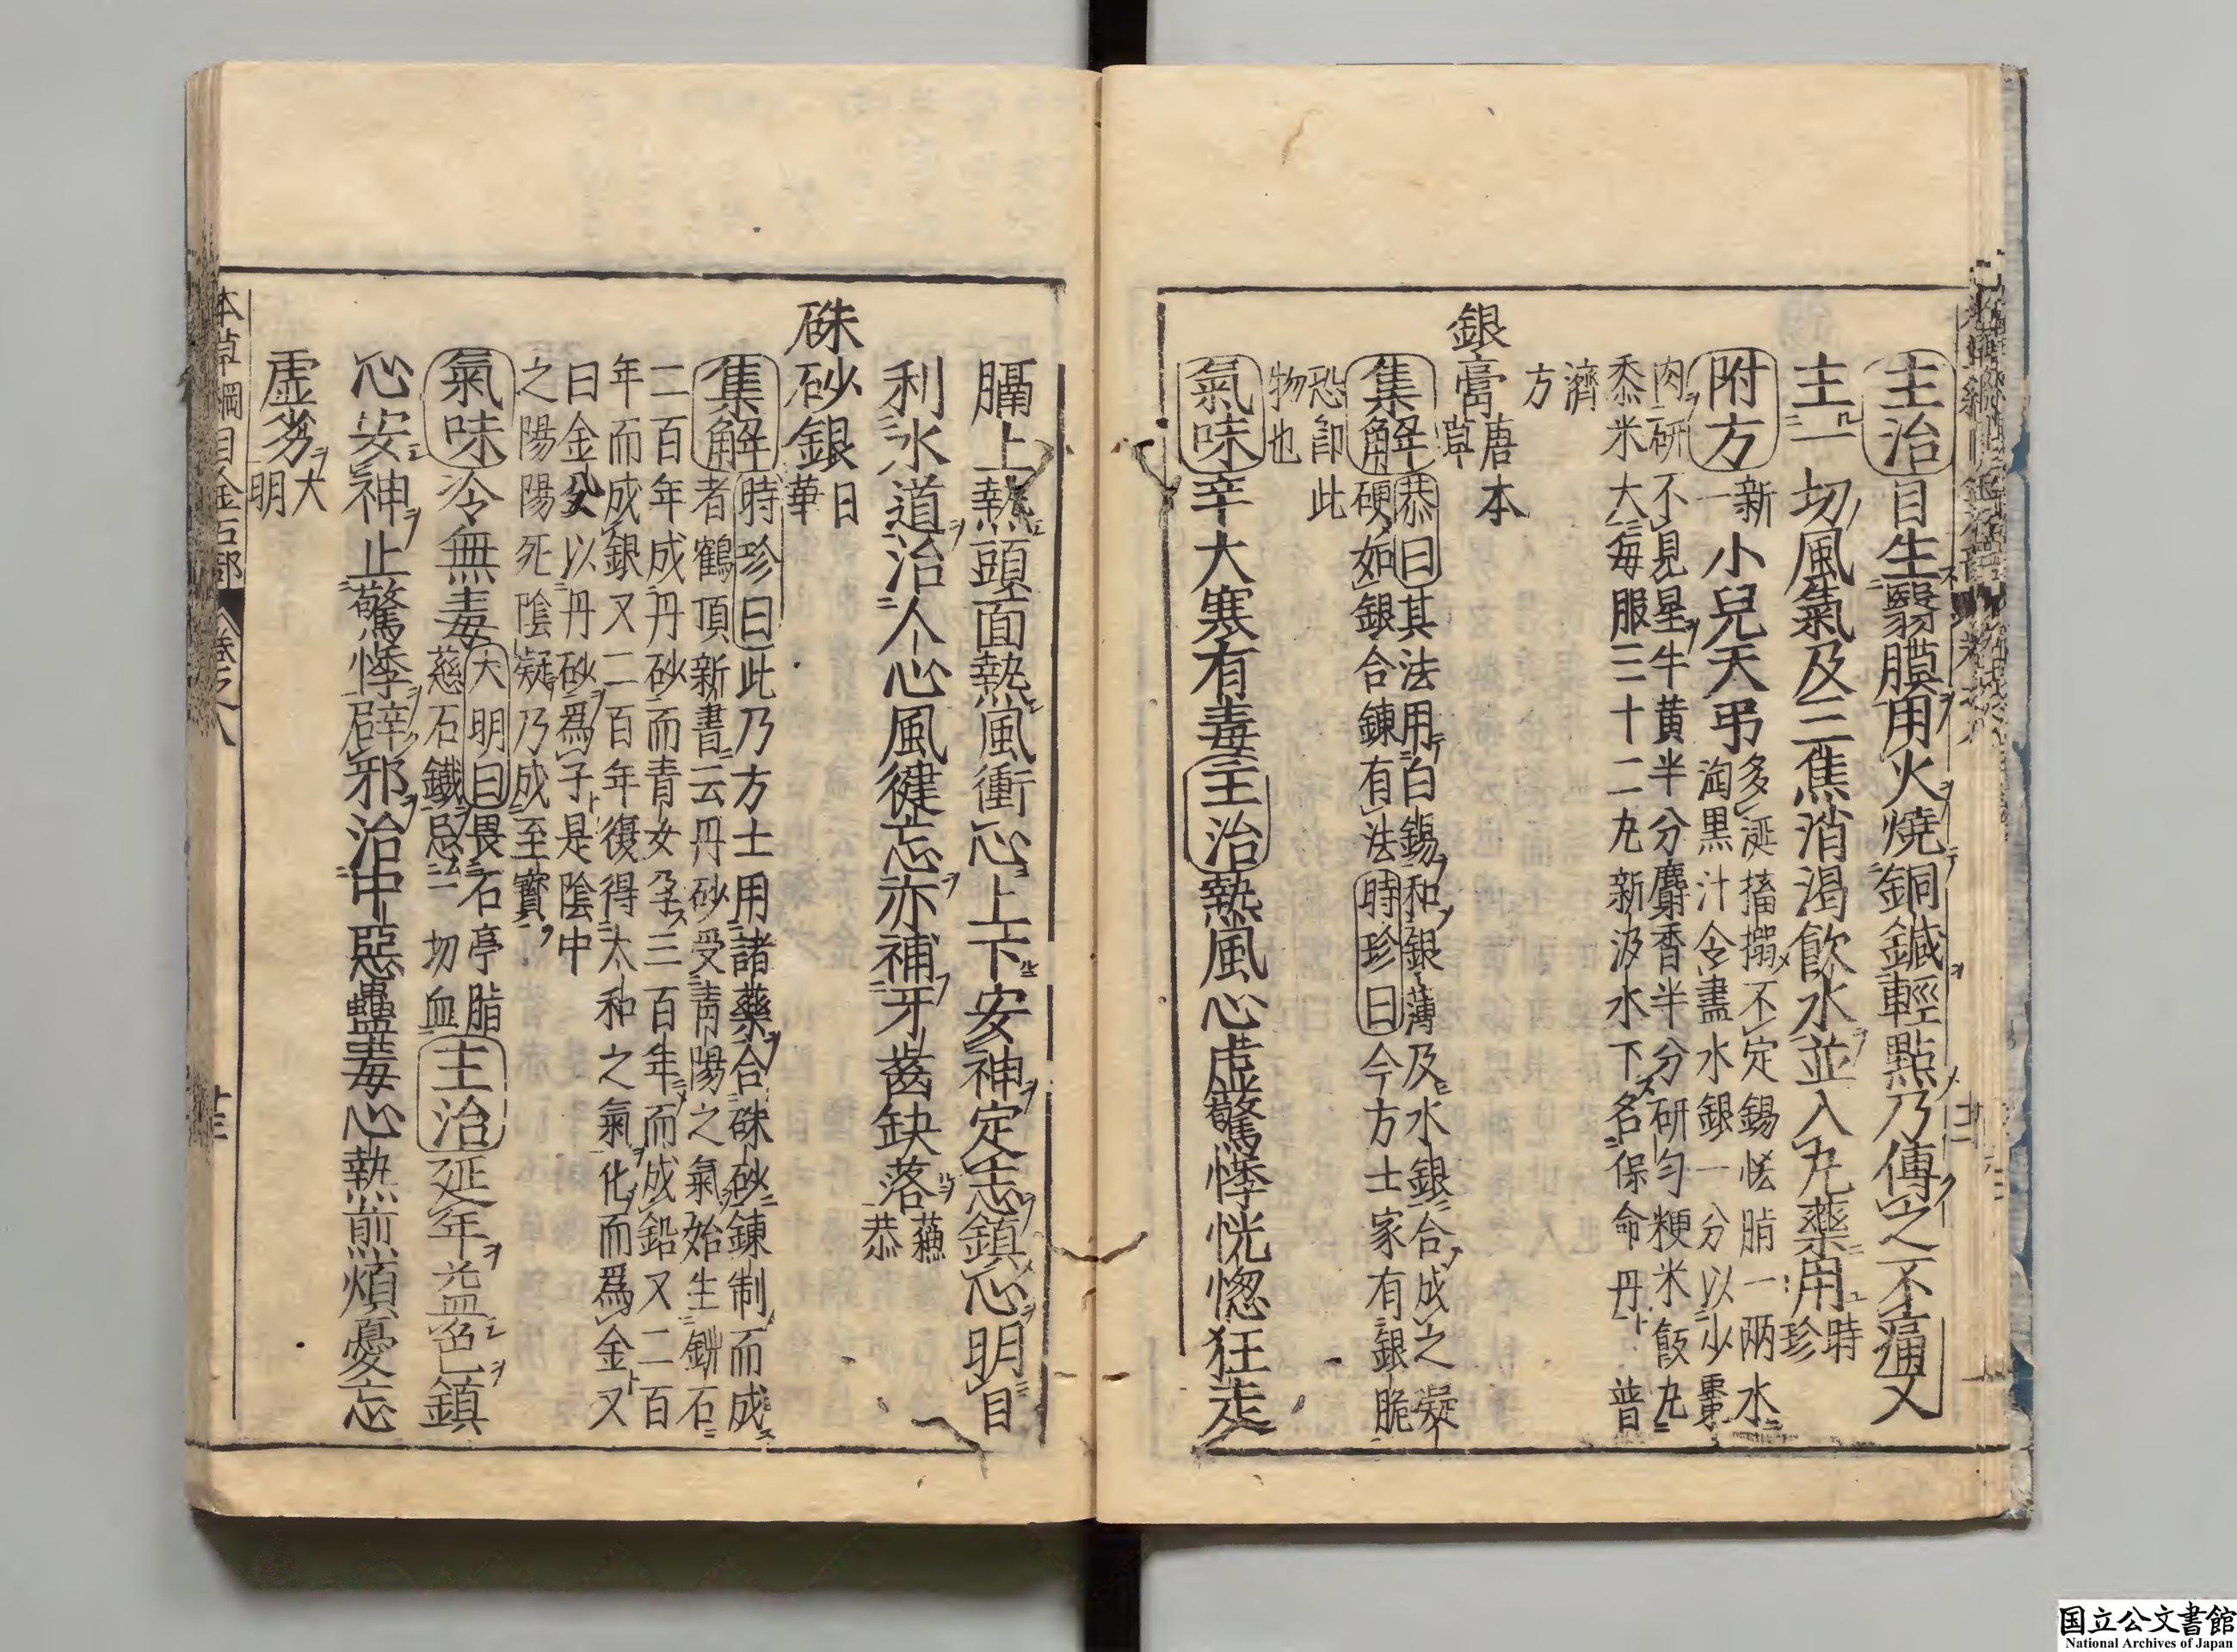 主治目生翳膜用火燒銅鍼輕點乃傅之不痛又
主一切風氣及三焦消渴飲水並入丸藥用時珍
附方新一小兒天弔多涎搐搦不定錫恡脂一兩水
淘黑汁令盡水銀一分以少棗
肉研不見星牛黄半分麝香半分研勻粳米飯丸
黍米大毎服三十二丸新汲水下名保命丹普
濟
方
銀膏唐本
草
集解恭曰其法用白錫和銀薄及水銀合成之凝
硬如銀合鍊有法時珍曰今方士家有銀脆
恐即此
物也
氣味辛大寒有毒主治熱風心虛驚悸恍惚狂走
膈上熱頭面熱風衝心上下安神定志鎮心明目
利水道治人心風健忘亦補牙齒缺落蘇
恭
硃砂銀日
華
集解時珍曰此乃方士用諸藥合硃砂鍊制而成
者鶴頂新書云丹砂受青陽之氣始生鉚石
二百年成丹砂而青女孕三百年而成鉛又二百
年而成銀又二百年復得太和之氣化而爲金又
曰金公以丹砂爲子是陰中
之陽陽死陰凝乃成至寳
氣味冷無毒大明曰畏石亭脂
慈石鐵忌一切血主治延年益色鎮
心安神止驚悸辟邪治中惡蠱毒心熱煎煩憂忘
虚劣大
明
本草綱目金石部 八卷之八
国立公文書館
National Archives of Japan